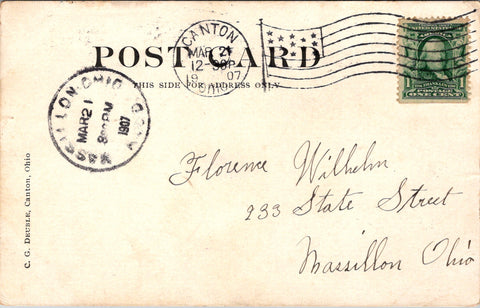 CANTON
MAR 21
12-30P
1907
OHIO
POST CARD
THIS SIDE FOR ADDRESS ONLY
MASSILLON, OHIO
MAR 21
PM
1907
POSTAGE
ONE CENT
Florence Wilhelm
233 State Street
Massillon Ohio
C. G. DEUBLE, Canton, Ohio